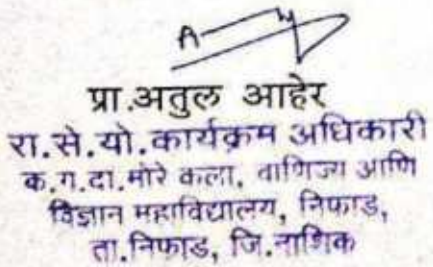 प्रा.अतुल आहेर
रा.से.यो.कार्यक्रम अधिकारी
क.ग.दा.मोरे कला, वाणिज्य आणि
विज्ञान महाविद्यालय, निफाड,
ता.निफाड, जि.नाशिक